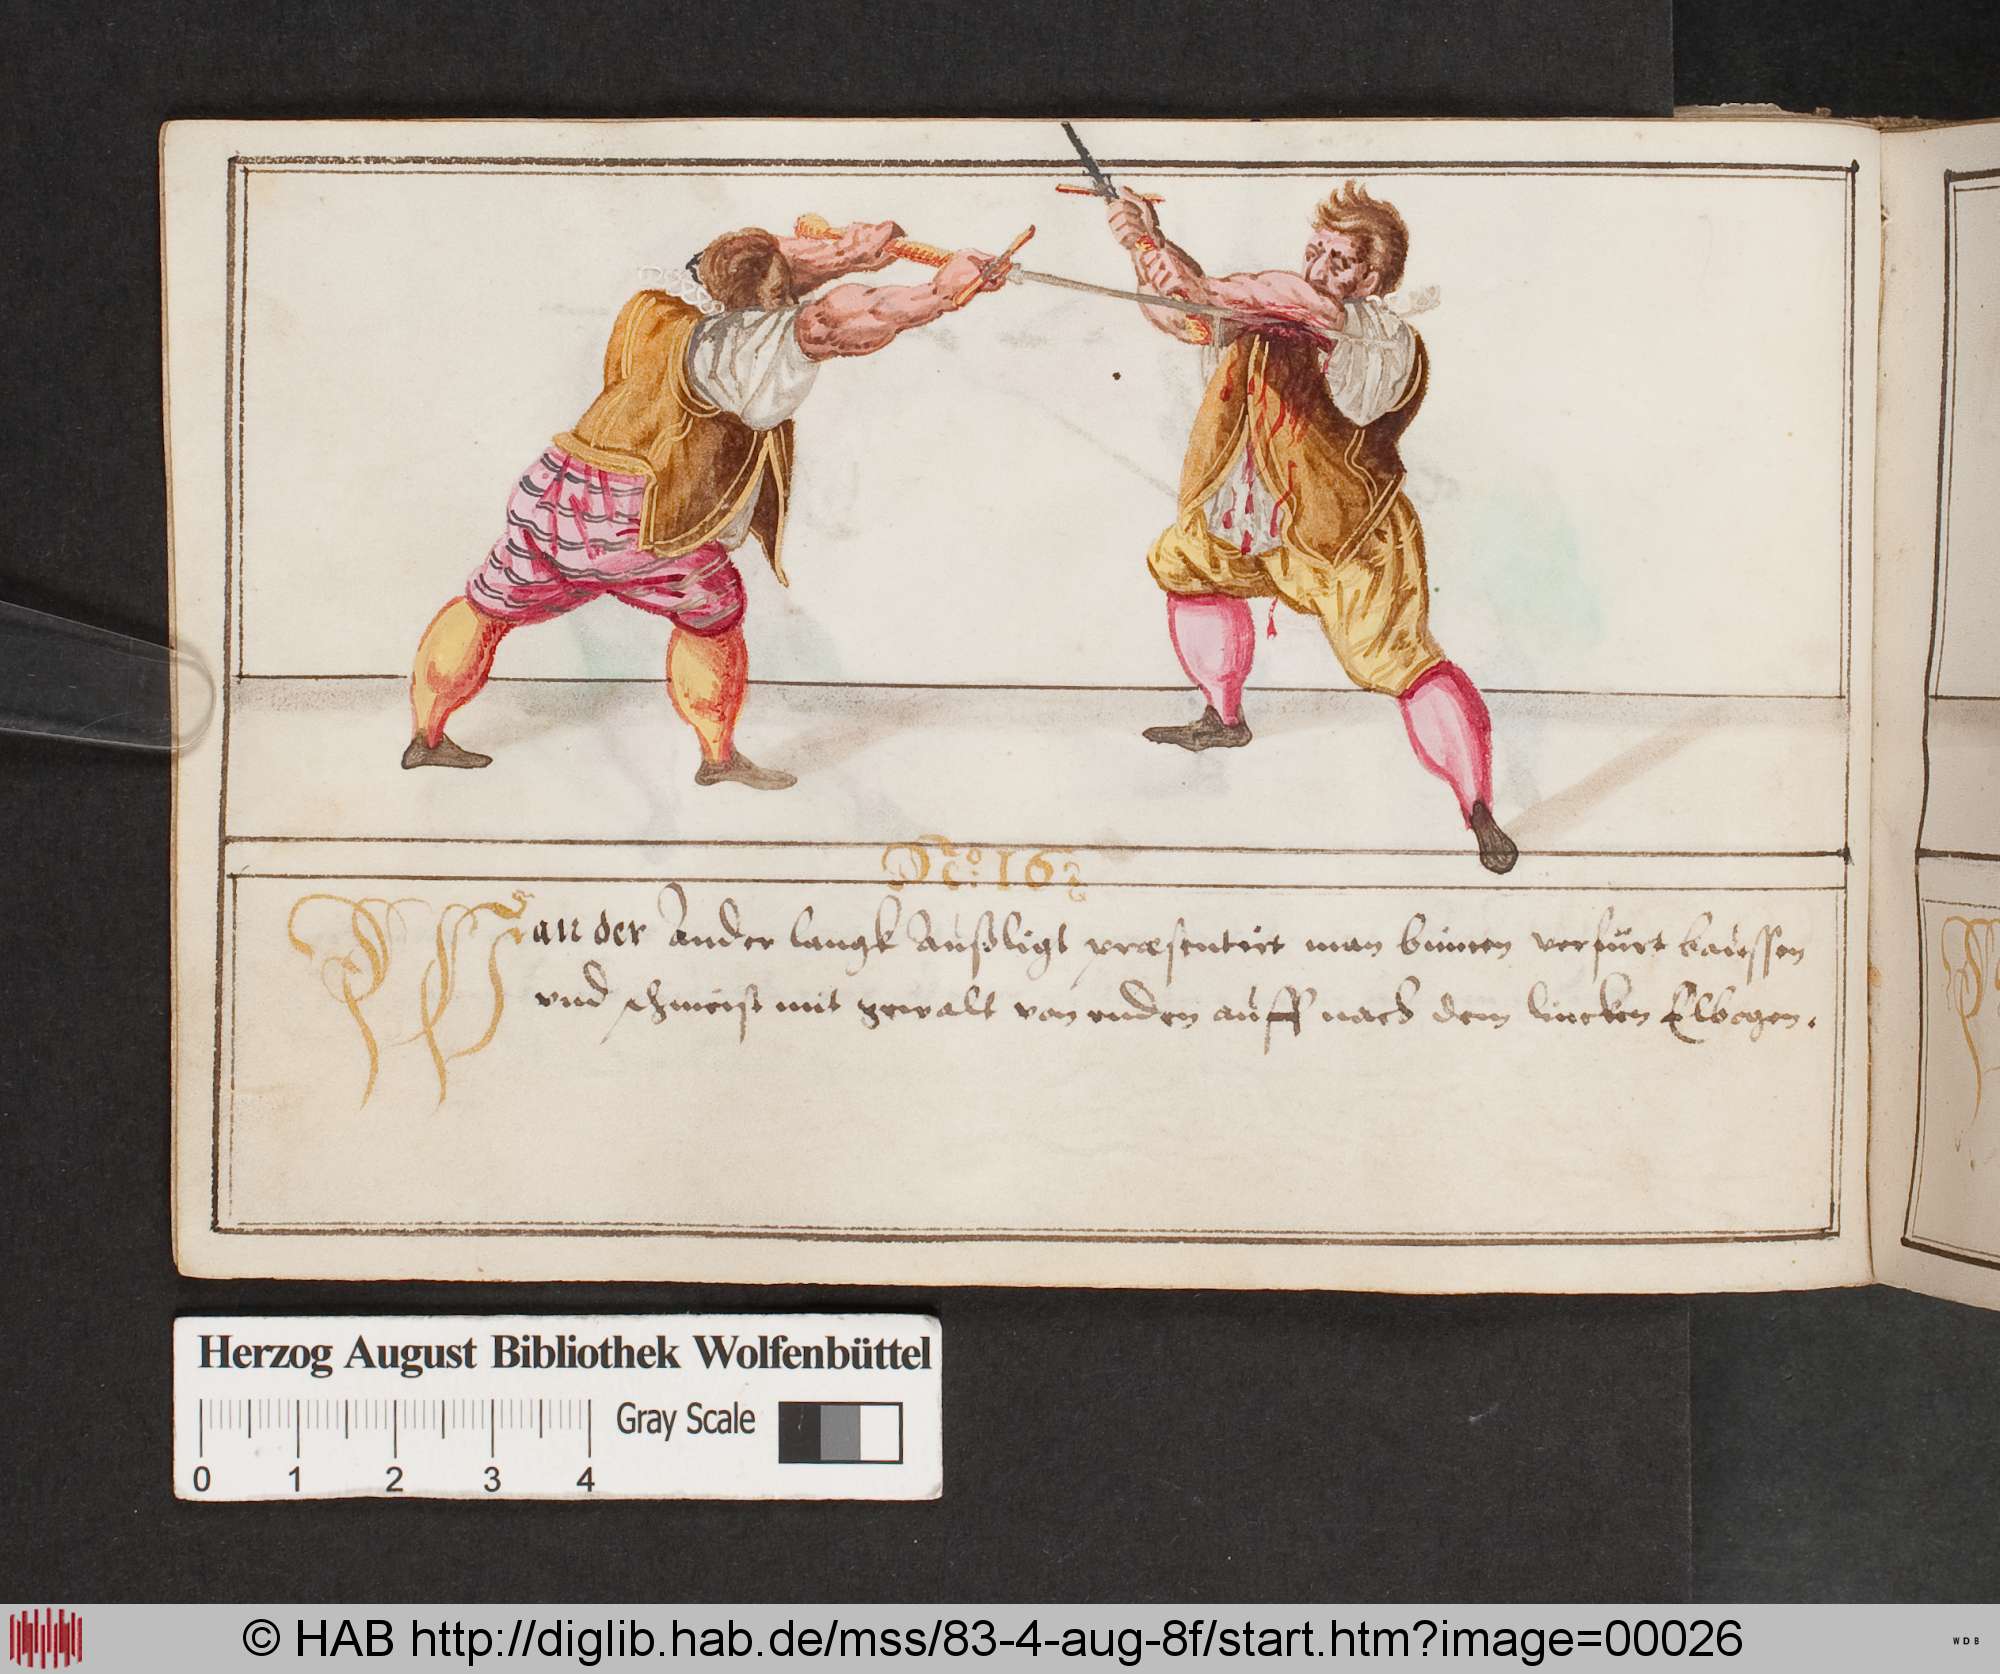 No: 16
Wan der Ander langk Außligt præsentirt man binnen verfürt baussen
vnd schmeist mit gewalt von vnden auff nach dem lincken Elbogen.
Herzog August Bibliothek Wolfenbüttel
Gray Scale
0 1 2 3 4
© HAB http://diglib.hab.de/mss/83-4-aug-8f/start.htm?image=00026
WDB